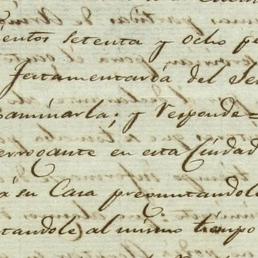 entos setenta y ocho pe
Testamentaria del Se
saminarla; y Responde=
errogante en esta Ciudad
á su Casa preguntandole
tandole) al mismo tiempo